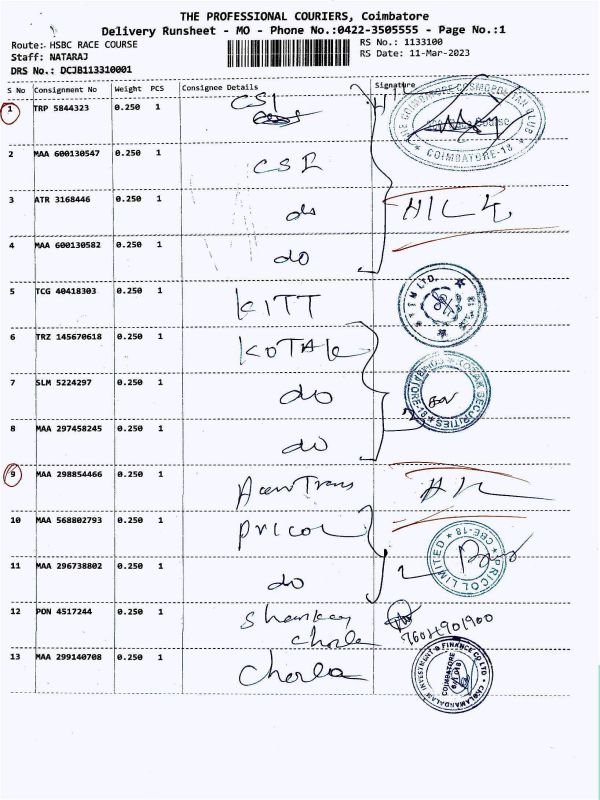 THE PROFESSIONAL COURIERS, Coimbatore
Delivery Runsheet - MO - Phone No.:0422-3505555 - Page No.:1
Route: HSBC RACE COURSE
RS No.: 1133100
Staff: NATARAJ
RS Date: 11-Mar-2023
DRS No.: DCJB113310001
S No Consignment No Weight PCS Consignee Details Signature
1 TRP 5844323 0.250 1 CSI
THE COIMBATORE COSMOPOLITAN CLUB
COIMBATORE-18
2 MAA 600130547 0.250 1
3 ATR 3168446 0.250 1 do
4 MAA 600130582 0.250 1 do
5 TCG 40418303 0.250 1 KITT
6 TRZ 145670618 0.250 1 KOTAK
7 SLM 5224297 0.250 1 do
KOTAK SECURITIES
8 MAA 297458245 0.250 1 do
9 MAA 298854466 0.250 1
10 MAA 568802793 0.250 1 Pricol
PRICOL LIMITED CBE-18
11 MAA 296738802 0.250 1 do
12 PON 4517244 0.250 1 Chola
13 MAA 299140708 0.250 1 Chola
CHOLAMANDALAM INVESTMENT & FINANCE CO LTD
COIMBATORE